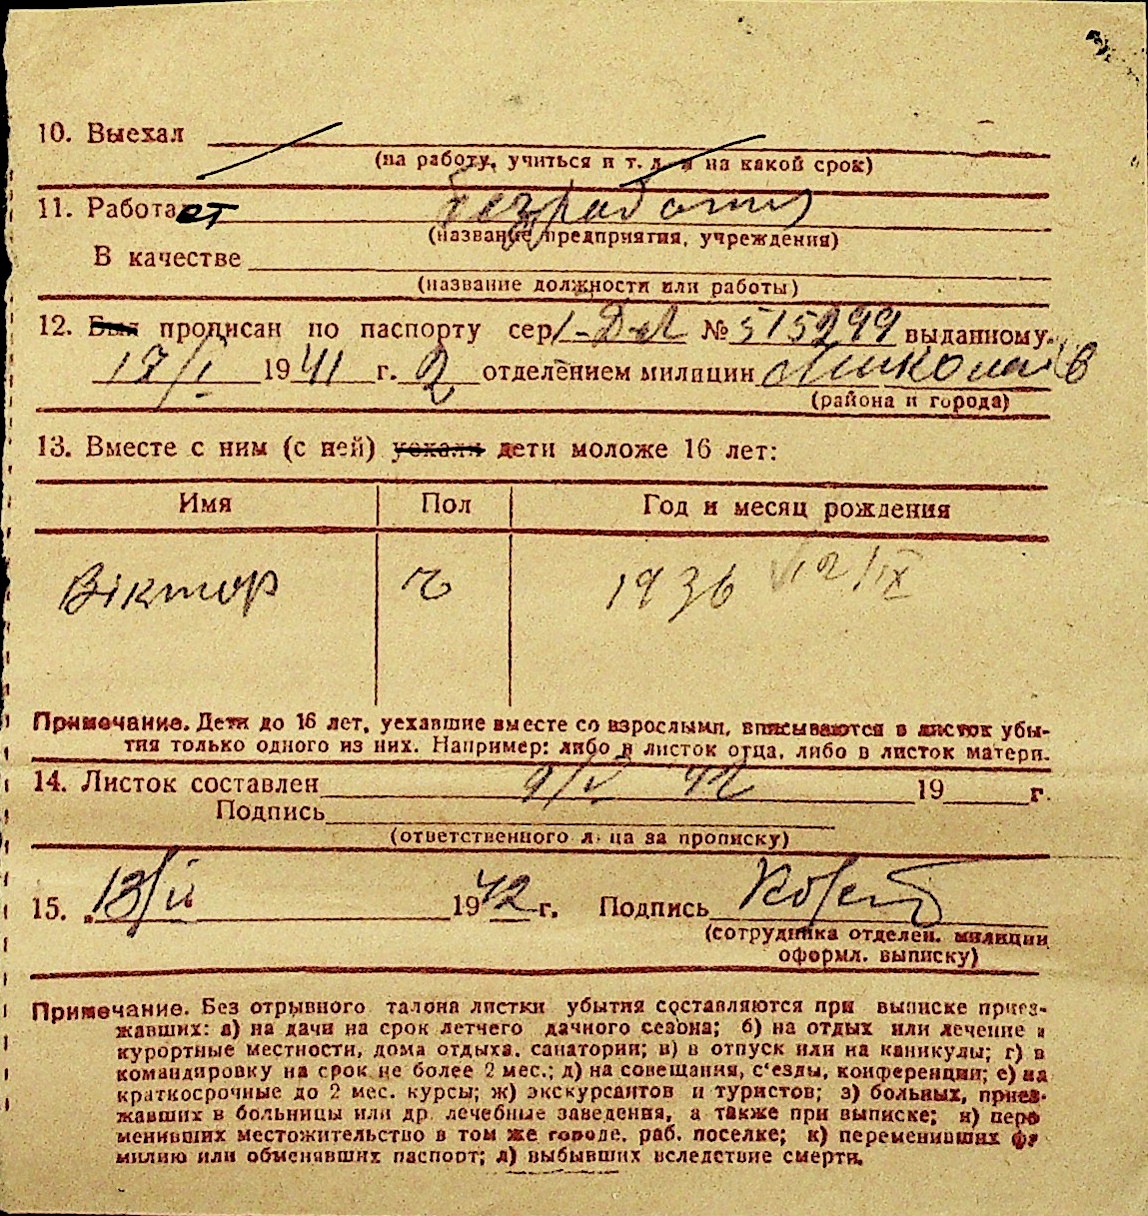 10. Выехал
(на работу, учиться и т. д. и на какой срок)
11. Работает безработний
(название предприятия, учреждения)
В качестве
(название должности или работы)
12. Был прописан по паспорту сер. № 515299 выданному
1941 г. 2 отделением милиции
(района и города)
13. Вместе с ним (с ней) уехали дети моложе 16 лет:
Имя Пол Год и месяц рождения
Віктор ч 1936
Примечание. Дети до 16 лет, уехавшие вместе со взрослыми, вписываются в листок убы-
тия только одного из них. Например: либо в листок отца, либо в листок матери.
14. Листок составлен 9/V 42 19 г.
Подпись
(ответственного лица за прописку)
15. 1942 г. Подпись
(сотрудника отделен. милиции
оформл. выписку)
Примечание. Без отрывного талона листки убытия составляются при выписке приез-
жавших: а) на дачи на срок летнего дачного сезона; б) на отдых или лечение в
курортные местности, дома отдыха, санатории; в) в отпуск или на каникулы; г) в
командировку на срок не более 2 мес.; д) на совещания, с'езды, конференции; е) на
краткосрочные до 2 мес. курсы; ж) экскурсантов и туристов; з) больных, приез-
жавших в больницы или др. лечебные заведения, а также при выписке; и) пере
менивших местожительство в том же городе, раб. поселке; к) переменивших фа
милию или обменявших паспорт; л) выбывших вследствие смерти.